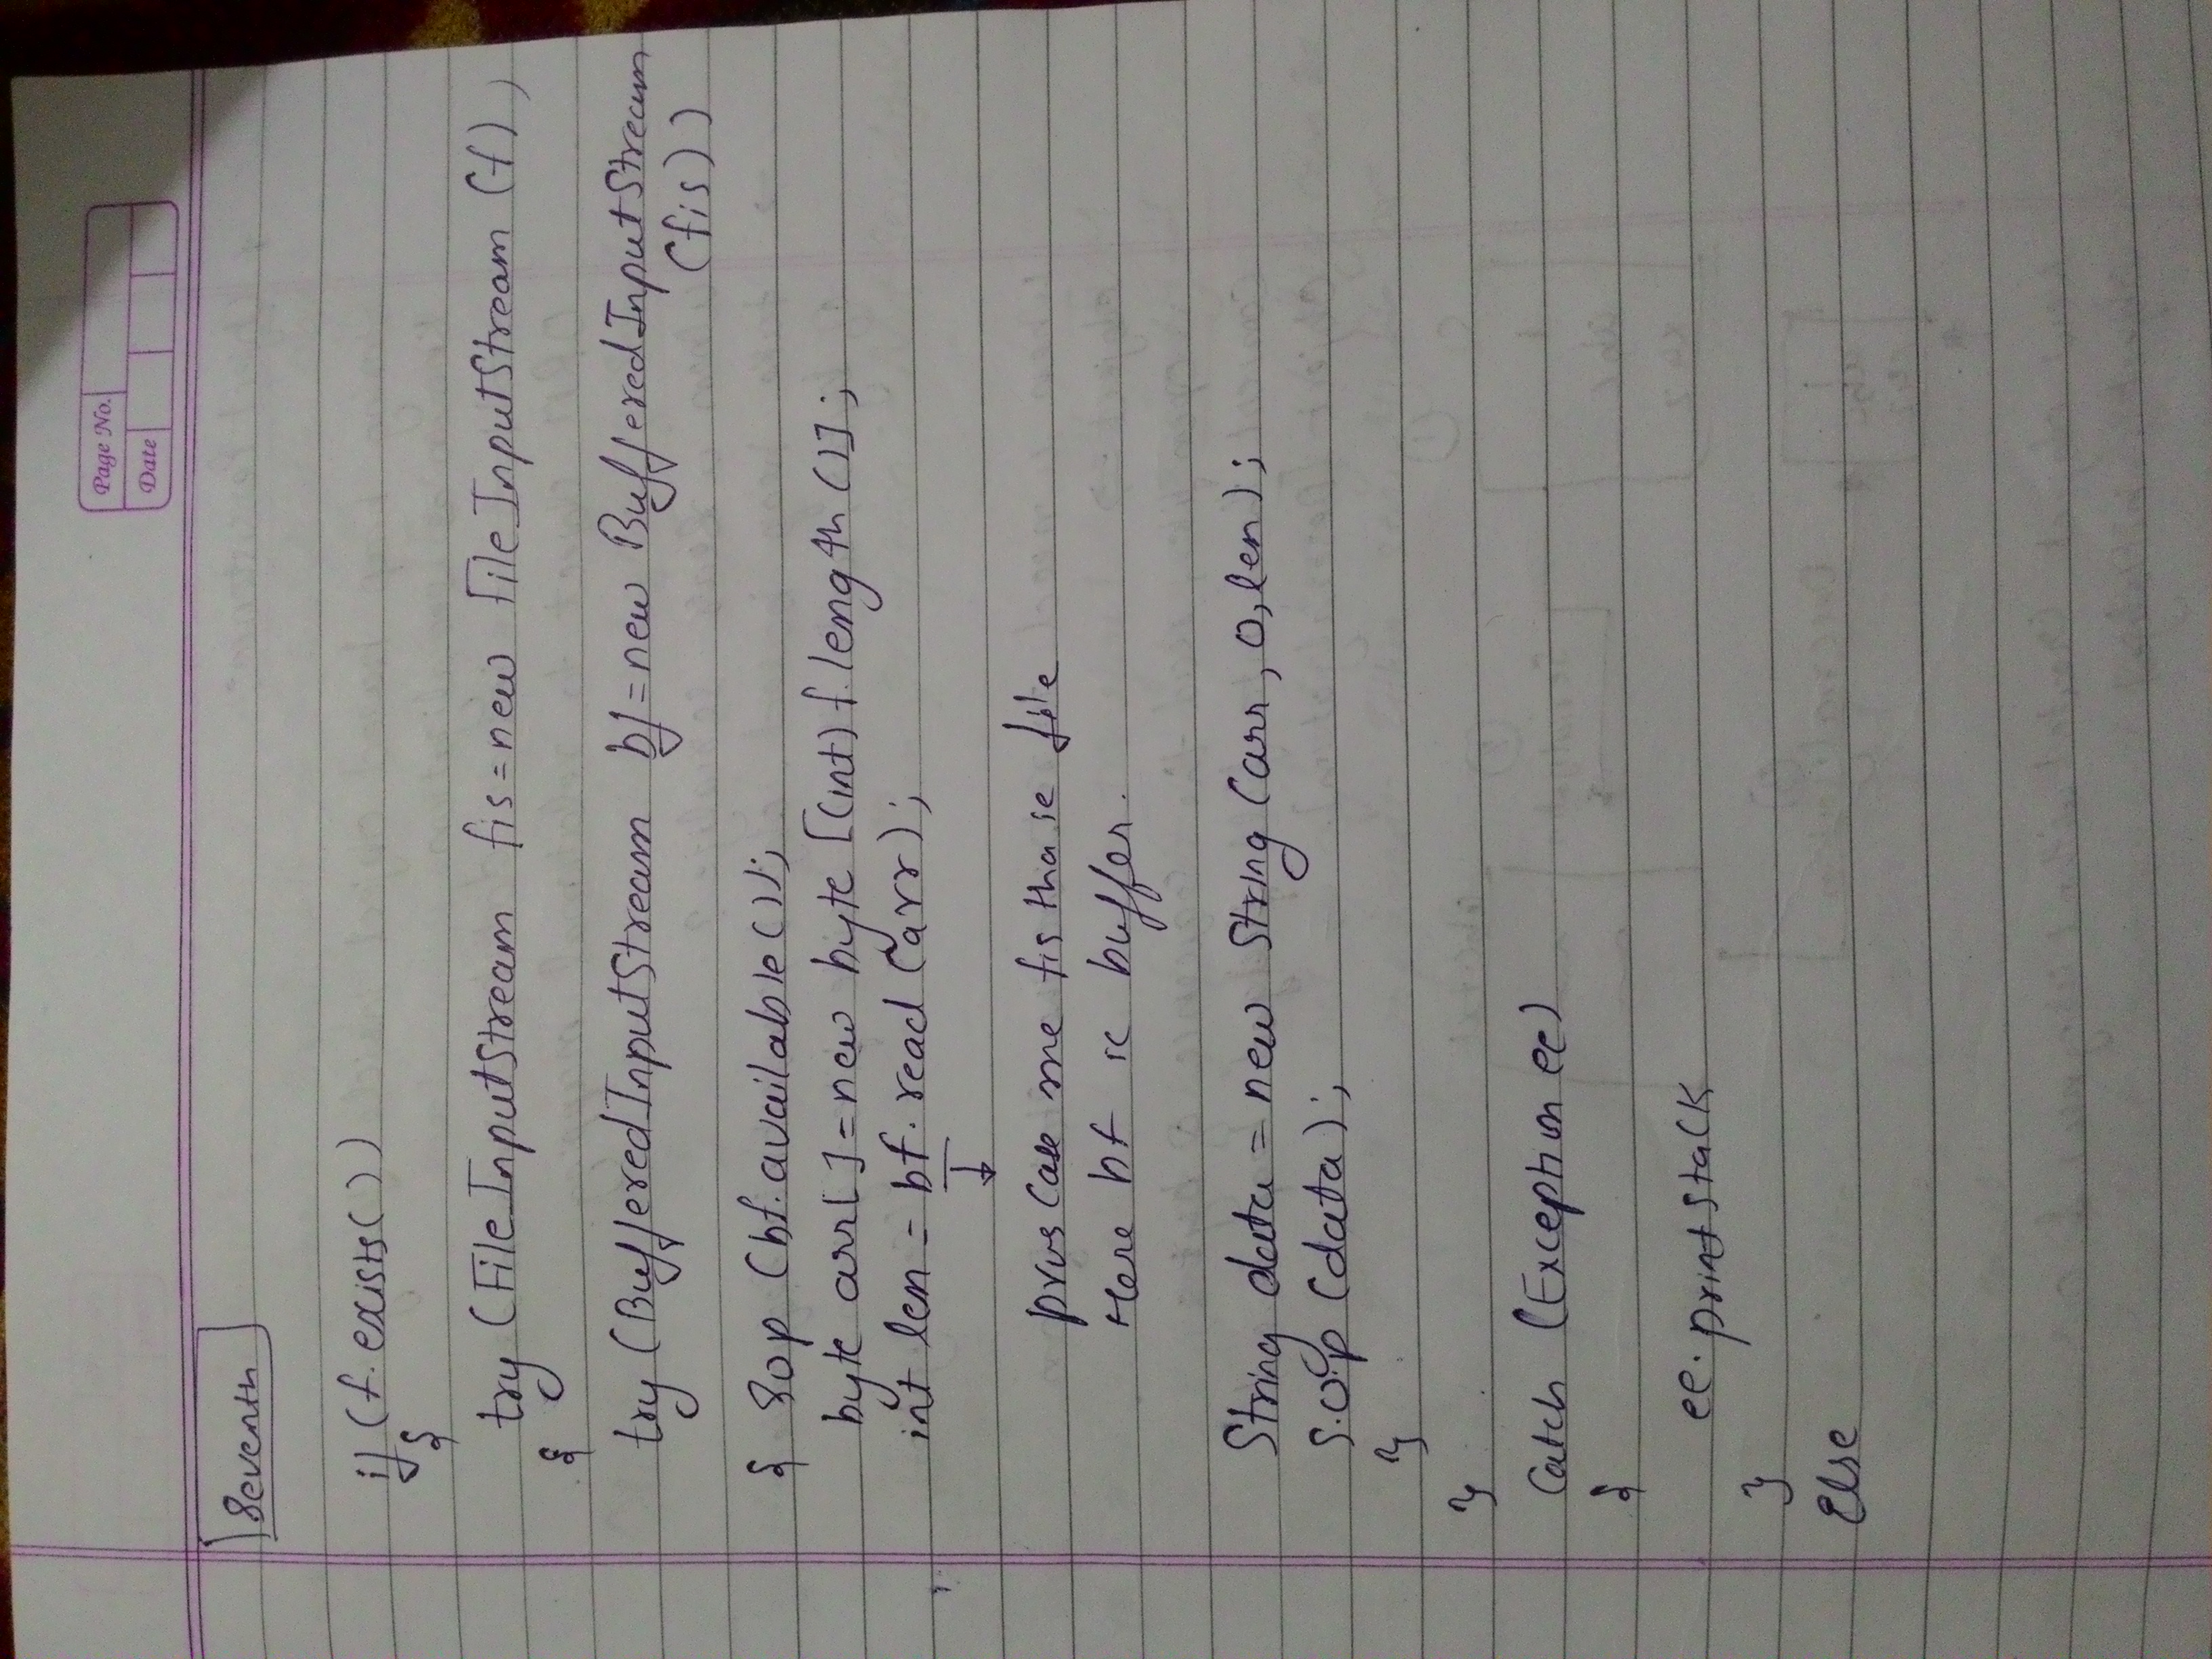 Page No.
Date
Seventh
if (f.exists())
{
try (FileInputStream fis = new FileInputStream (f))
{
try (BufferedInputStream bf = new BufferedInputStream
(fis))
{ Sop (bf.available());
byte arr[] = new byte [(int) f.length ()];
int len = bf. read (arr);
prvs Case me fis tha ie file
Here bf ie buffer.
String data = new String (arr, 0, len);
S.o.p (data);
}
}
Catch (Exception ee)
{
ee. printstack
}
Else